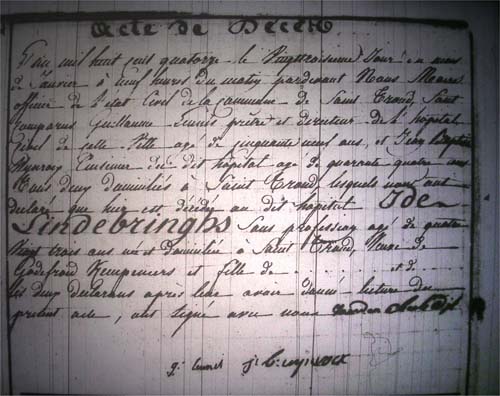 Acte de Décès
L'an mil huit cent quatorze le Vingttroisieme Jour du mois
de Janvier à neuf heures du matin pardevant Nous Maire
officier de l'etat Civil de la Commune de Saint Trond, Sont
Comparus Guillaume prêtre et directeur de l'hôpital
Civil de cette Ville agé de cinquante neuf ans, et Jean Baptiste
Cuisinier du dit hôpital agé de quarante quatre ans
tous deux domiciliés à Saint Trond lesquels nous ont
declaré que hier est décédé au dit hôpital Ide
Lindebringhs Sans profession agé de quatre
Vingt trois ans né et domiciliée à Saint Trond, Veuve de
Godefroid Kempeneers et fille de . . . . . . et d . . .
les deux declarans après leur avoir donné lecture du
présent acte, ont signé avec nous